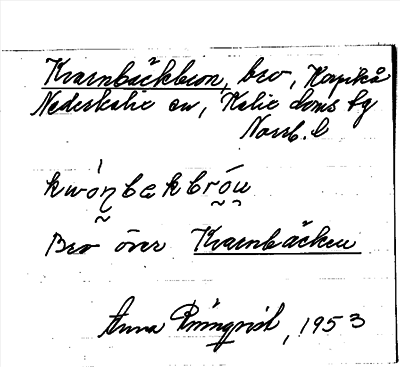 Kvarnbäckbron, bro, Korpikå
Nederkalix sn, Kalix doms fg
Norrb. l
kwȯ́ṇbækbróu
Bro över Kvarnbäcken
Anna Rönnqvist, 1953